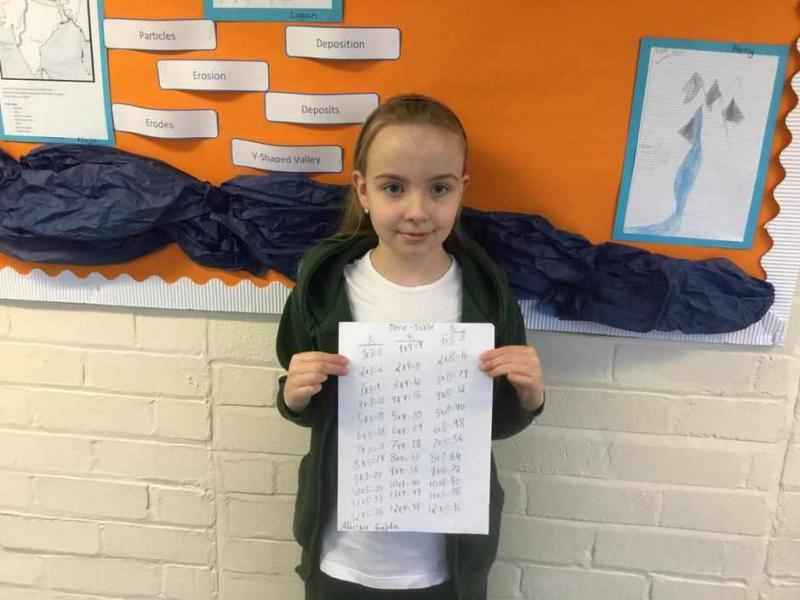 Logan
Particles
Deposition
Erosion
Deposits
Erodes
V-Shaped Valley
Time-table
3s 4s 8s
1x3=3 1x4=4 1x8=8
2x3=6 2x4=8 2x8=16
3x3=9 3x4=12 3x8=24
4x3=12 4x4=16 4x8=32
5x3=15 5x4=20 5x8=40
6x3=18 6x4=24 6x8=48
7x3=21 7x4=28 7x8=56
8x3=24 8x4=32 8x8=64
9x3=27 9x4=36 9x8=72
10x3=30 10x4=40 10x8=80
11x3=33 11x4=44 11x8=88
12x3=36 12x4=48 12x8=96